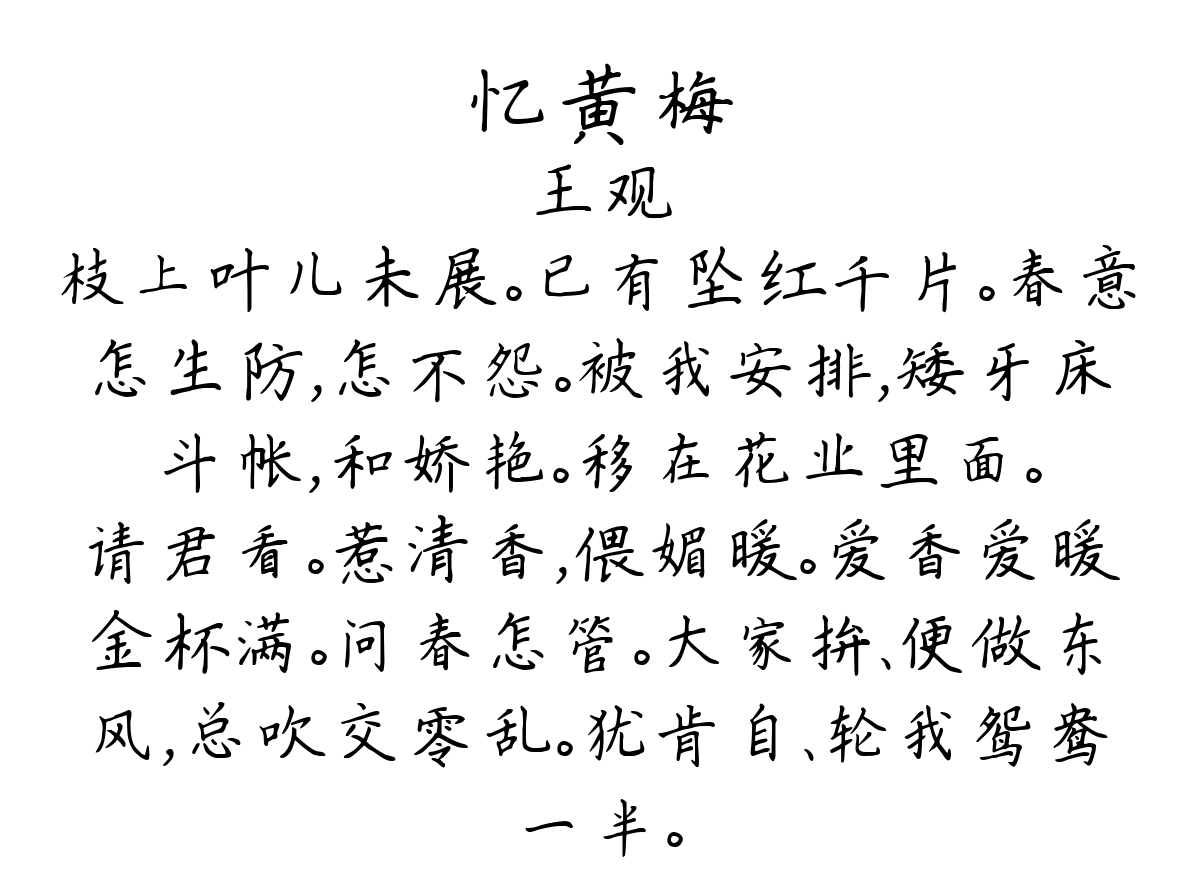 忆黄梅
王观
枝上叶儿未展。已有坠红千片。春意
怎生防,怎不怨。被我安排,矮牙床
斗帐,和娇艳。移在花业里面。
请君看。惹清香,偎媚暖。爱香爱暖
金杯满。问春怎管。大家拚、便做东
风,总吹交零乱。犹肯自、轮我鸳鸯
一半。